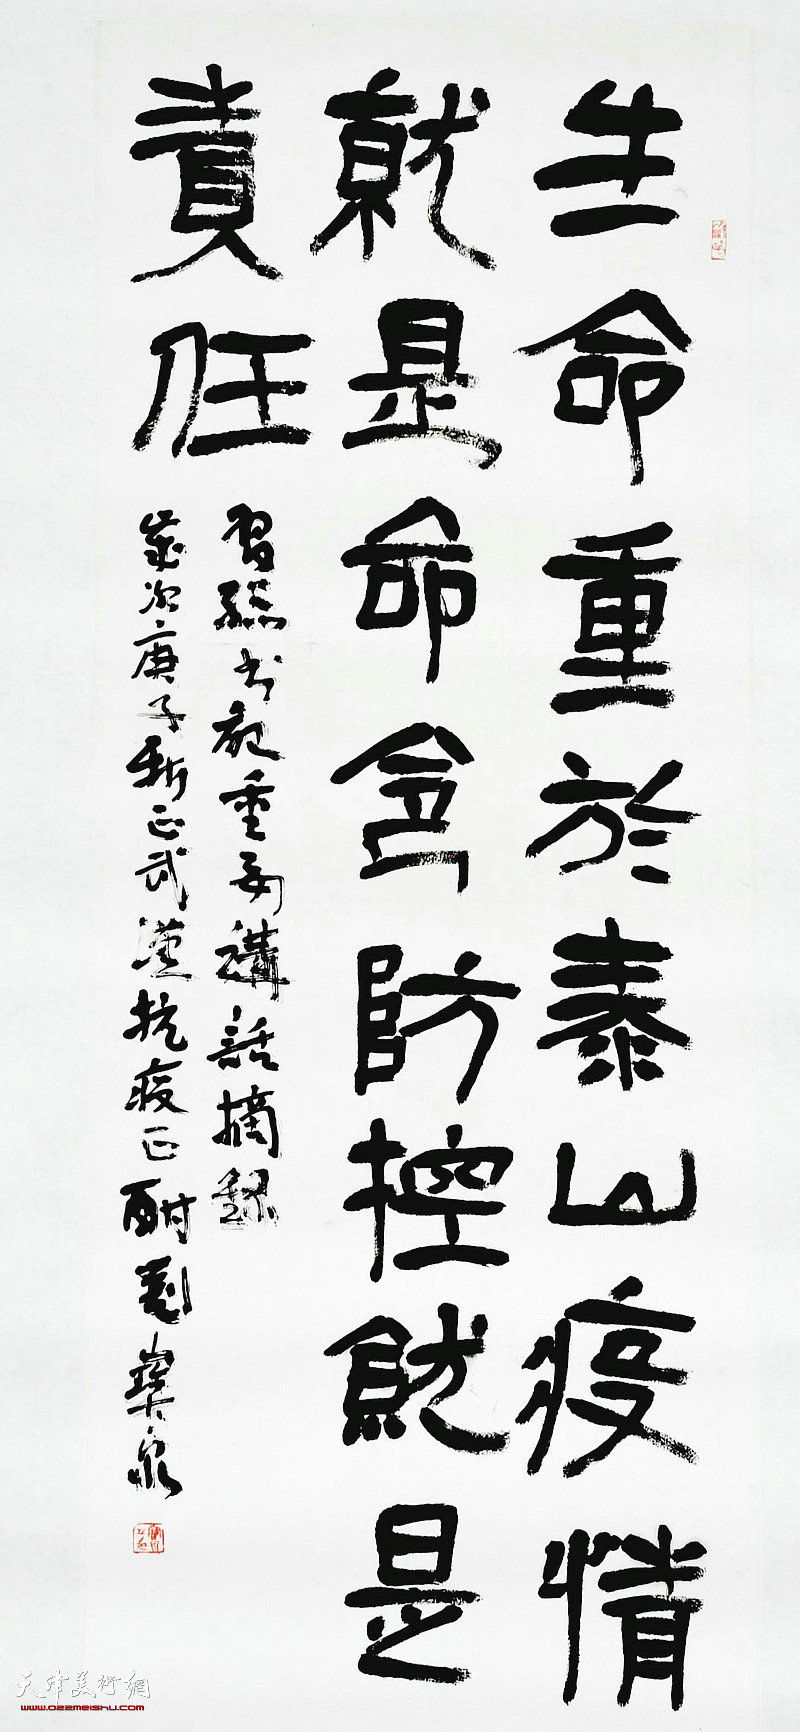 生命重於泰山疫情
就是命令防控就是
責任
習總书記重要講話摘録
歲次庚子新正武漢抗疫正酣劉奠泉
天津美術網
www.022meishu.com